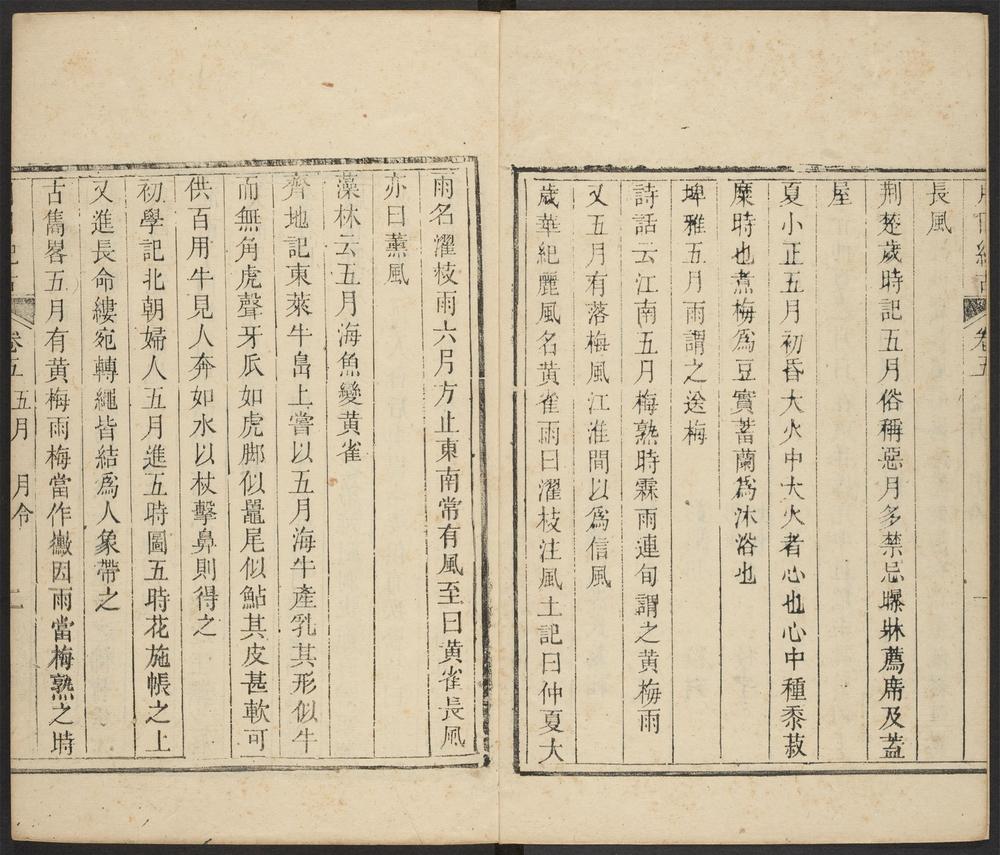 月日紀古　卷五　一
長風
荆楚歲時記五月俗稱惡月多禁忌曝牀薦席及蓋
屋
夏小正五月初昏大火中大火者心也心中種黍菽
糜時也煮梅爲豆實蓄蘭爲沐浴也
埤雅五月雨謂之送梅
詩話云江南五月梅熟時霖雨連旬謂之黄梅雨
又五月有落梅風江淮間以爲信風
歲華紀麗風名黄雀雨曰濯枝注風土記曰仲夏大
雨名濯枝雨六月方止東南常有風至曰黄雀長風
亦曰薰風
藻林云五月海魚變黄雀
齊地記東萊牛島上嘗以五月海牛產乳其形似牛
而無角虎聲牙瓜如虎脚似鼉尾似鮎其皮甚軟可
供百用牛見人奔如水以杖擊鼻則得之
初學記北朝婦人五月進五時圖五時花施帳之上
又進長命縷宛轉繩皆結爲人象帶之
古雋畧五月有黄梅雨梅當作黴因雨當梅熟之時
卷五　五月　月令　二